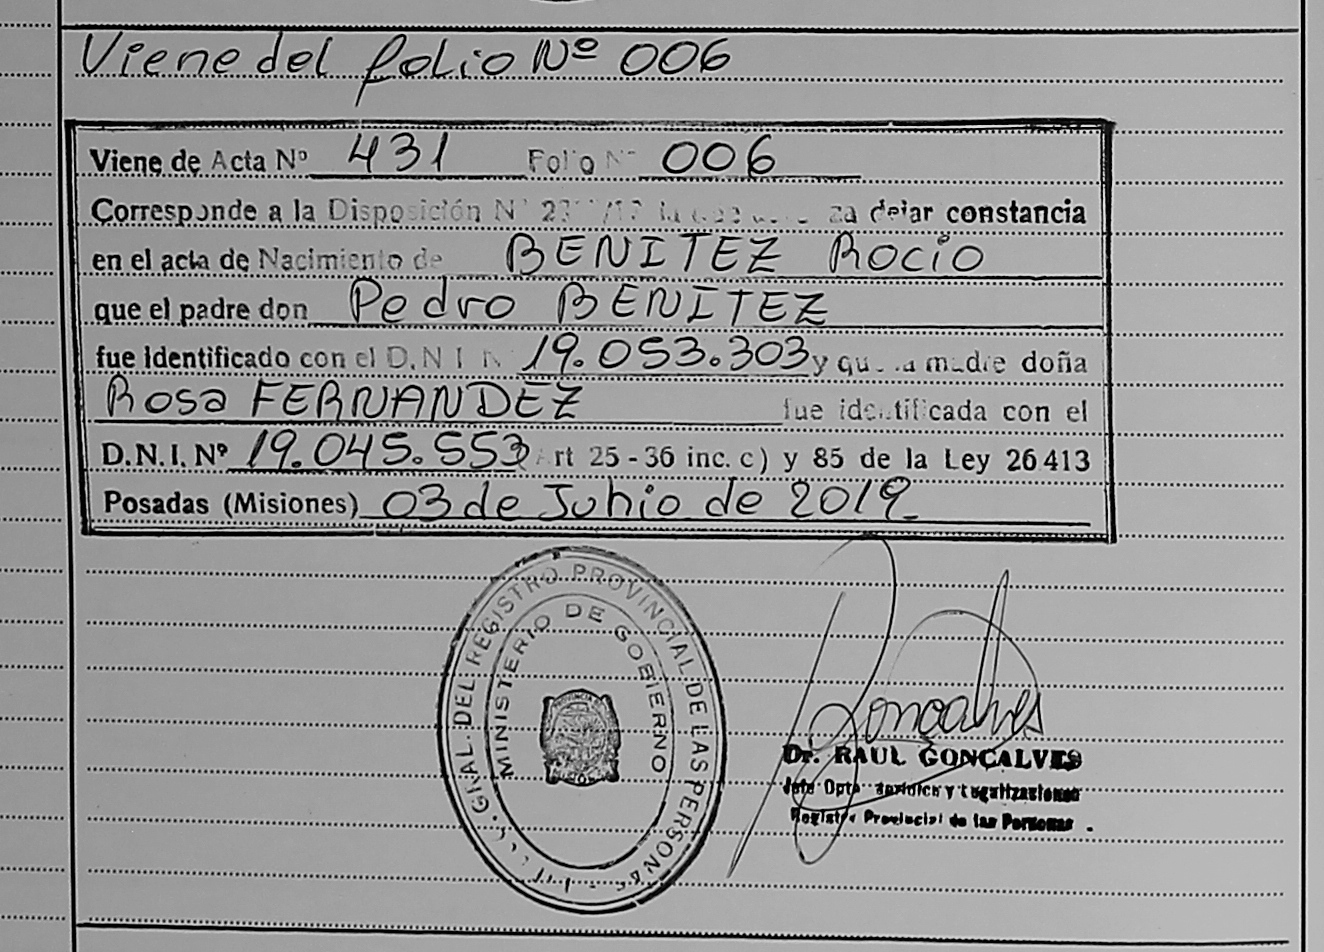 Viene del folio Nº 006
Viene de Acta Nº 431 Folio Nº 006
Corresponde a la Disposición Nº dejar constancia
en el acta de Nacimiento de BENITEZ ROCIO
que el padre don Pedro BENITEZ
fue identificado con el D.N.I. Nº 19.053.303 y que la madre doña
Rosa FERNANDEZ fue identificada con el
D.N.I. Nº 19.045.553 Art 25 - 36 inc. c) y 85 de la Ley 26413
Posadas (Misiones) 03 de Junio de 2019
GRAL. DEL REGISTRO PROVINCIAL DE LAS PERSONAS
MINISTERIO DE GOBIERNO
Goncalves
Dr. RAUL GONÇALVES
Jefe Dpto Jurídico y Legalizaciones
Registro Provincial de las Personas